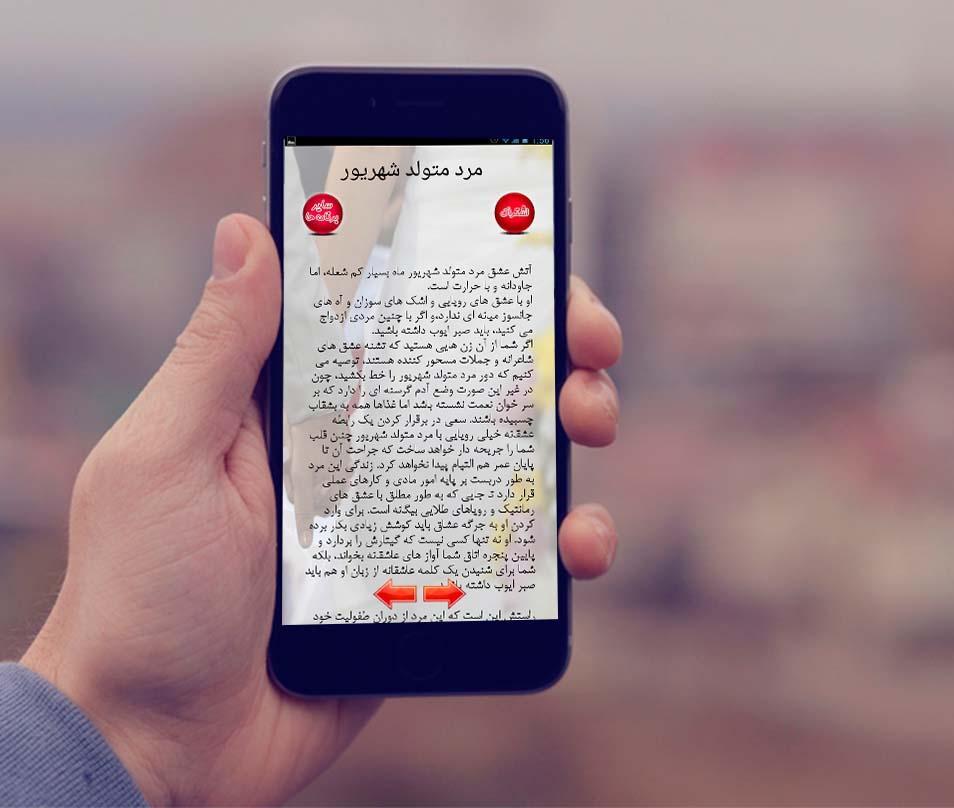 1:56
مرد متولد شهریور
اشتراک
سایر
برنامه ها
آتش عشق مرد متولد شهریور ماه بسیار کم شعله، اما
جاودانه و با حرارت است.
او با عشق های رویایی و اشک های سوزان و آه های
جانسوز میانه ای ندارد،و اگر با چنین مردی ازدواج
می کنید، باید صبر ایوب داشته باشید.
اگر شما از آن زن هایی هستید که تشنه عشق های
شاعرانه و جملات مسحور کننده هستند، توصیه می
کنیم که دور مرد متولد شهریور را خط بکشید، چون
در غیر این صورت وضع آدم گرسنه ای را دارد که بر
سر خوان نعمت نشسته باشد اما غذاها همه به بشقاب
چسبیده باشند. سعی در برقرار کردن یک رابطه
عشقانه خیلی رویایی با مرد متولد شهریور چنان قلب
شما را جریحه دار خواهد ساخت که جراحت آن تا
پایان عمر هم التیام پیدا نخواهد کرد. زندگی این مرد
به طور دربست بر پایه امور مادی و کارهای عملی
قرار دارد تا جایی که به طور مطلق با عشق های
رمانتیک و رویاهای طلایی بیگانه است. برای وارد
کردن او به جرگه عشاق باید کوشش زیادی بکار برده
شود. او نه تنها کسی نیست که گیتارش را بردارد و
پایین پنجره اتاق شما آواز های عاشقانه بخواند، بلکه
شما برای شنیدن یک کلمه عاشقانه از زبان او هم باید
صبر ایوب داشته
راستش این است که این مرد از دوران طفولیت خود